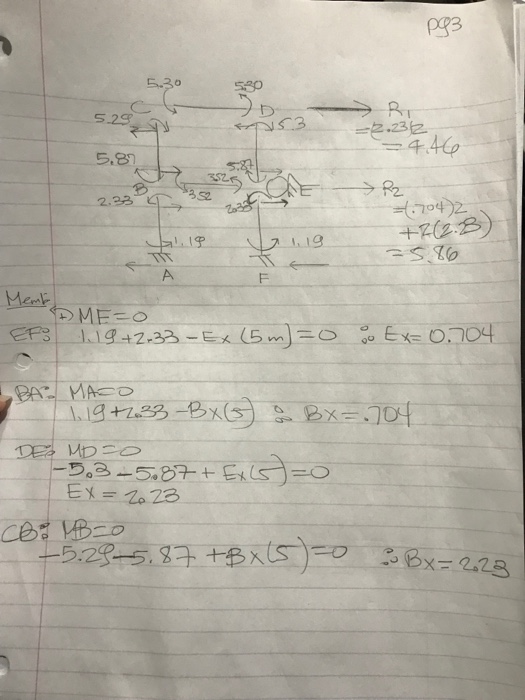 pg3
5.30 5.30
C D → R1
5.29 5.3 = 2.23(2
= 4.46
5.87 5.87
3.52 E → R2
B 3.52
2.33 2.33 = (.704)2
+ 2(2.23)
= 5.86
1.19 1.19
A F
(+) MF=0
EF: 1.19+2.33-Ex(5m)=0 ∴ Ex=0.704
BA: MA=0
1.19+2.33-Bx(5) ∴ Bx=.704
DE: MD=0
-5.3-5.87+Ex(5)=0
Ex=2.23
CB: MB=0
-5.29-5.87+Bx(5)=0 ∴ Bx=2.23